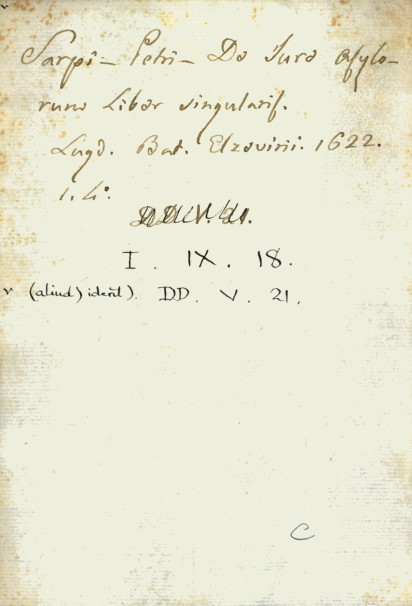 Sarpi - Petri - De Jure asylo-
rum Liber singularis.
Lugd. Bat. Elzevirii. 1622.
1. 4°.
I. IX. 18.
v (aliud) ident). DD. V. 21.
C